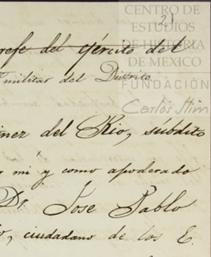 CENTRO DE
ESTUDIOS
DE HISTORIA
DE MEXICO
FUNDACIÓN
Carlos Slim
21
Gefe del ejército del
militar del Distrito
inez del Rio, subdito
y mi y como apoderado
D. Jose Pablo
o, ciudadano de los E.